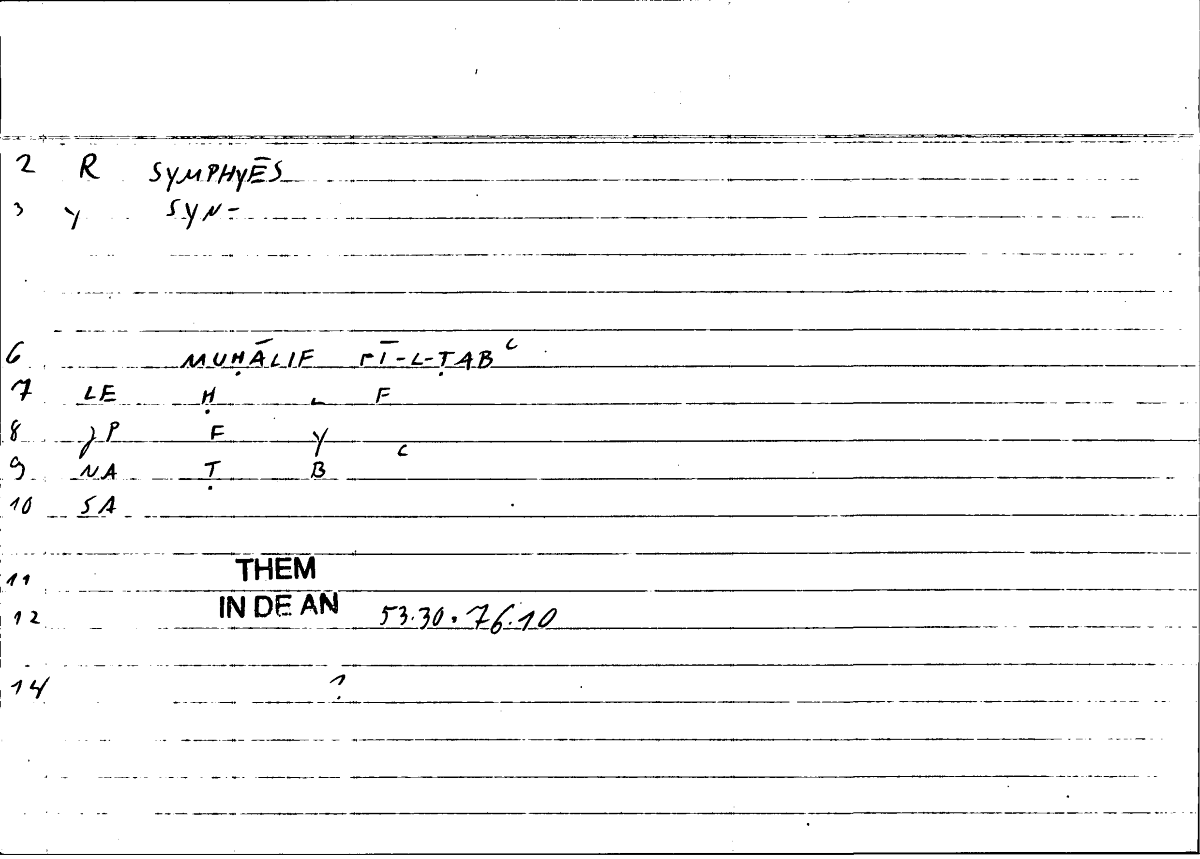 2 R SYMPHYĒS
3 Y SYN-
6 MUḤĀLIF FĪ-L-ṬABʿ
7 LE Ḥ L F
8 JP F Y
9 NA Ṭ B ʿ
10 SA
11 THEM
12 IN DE AN 53.30.76.10
14 ?